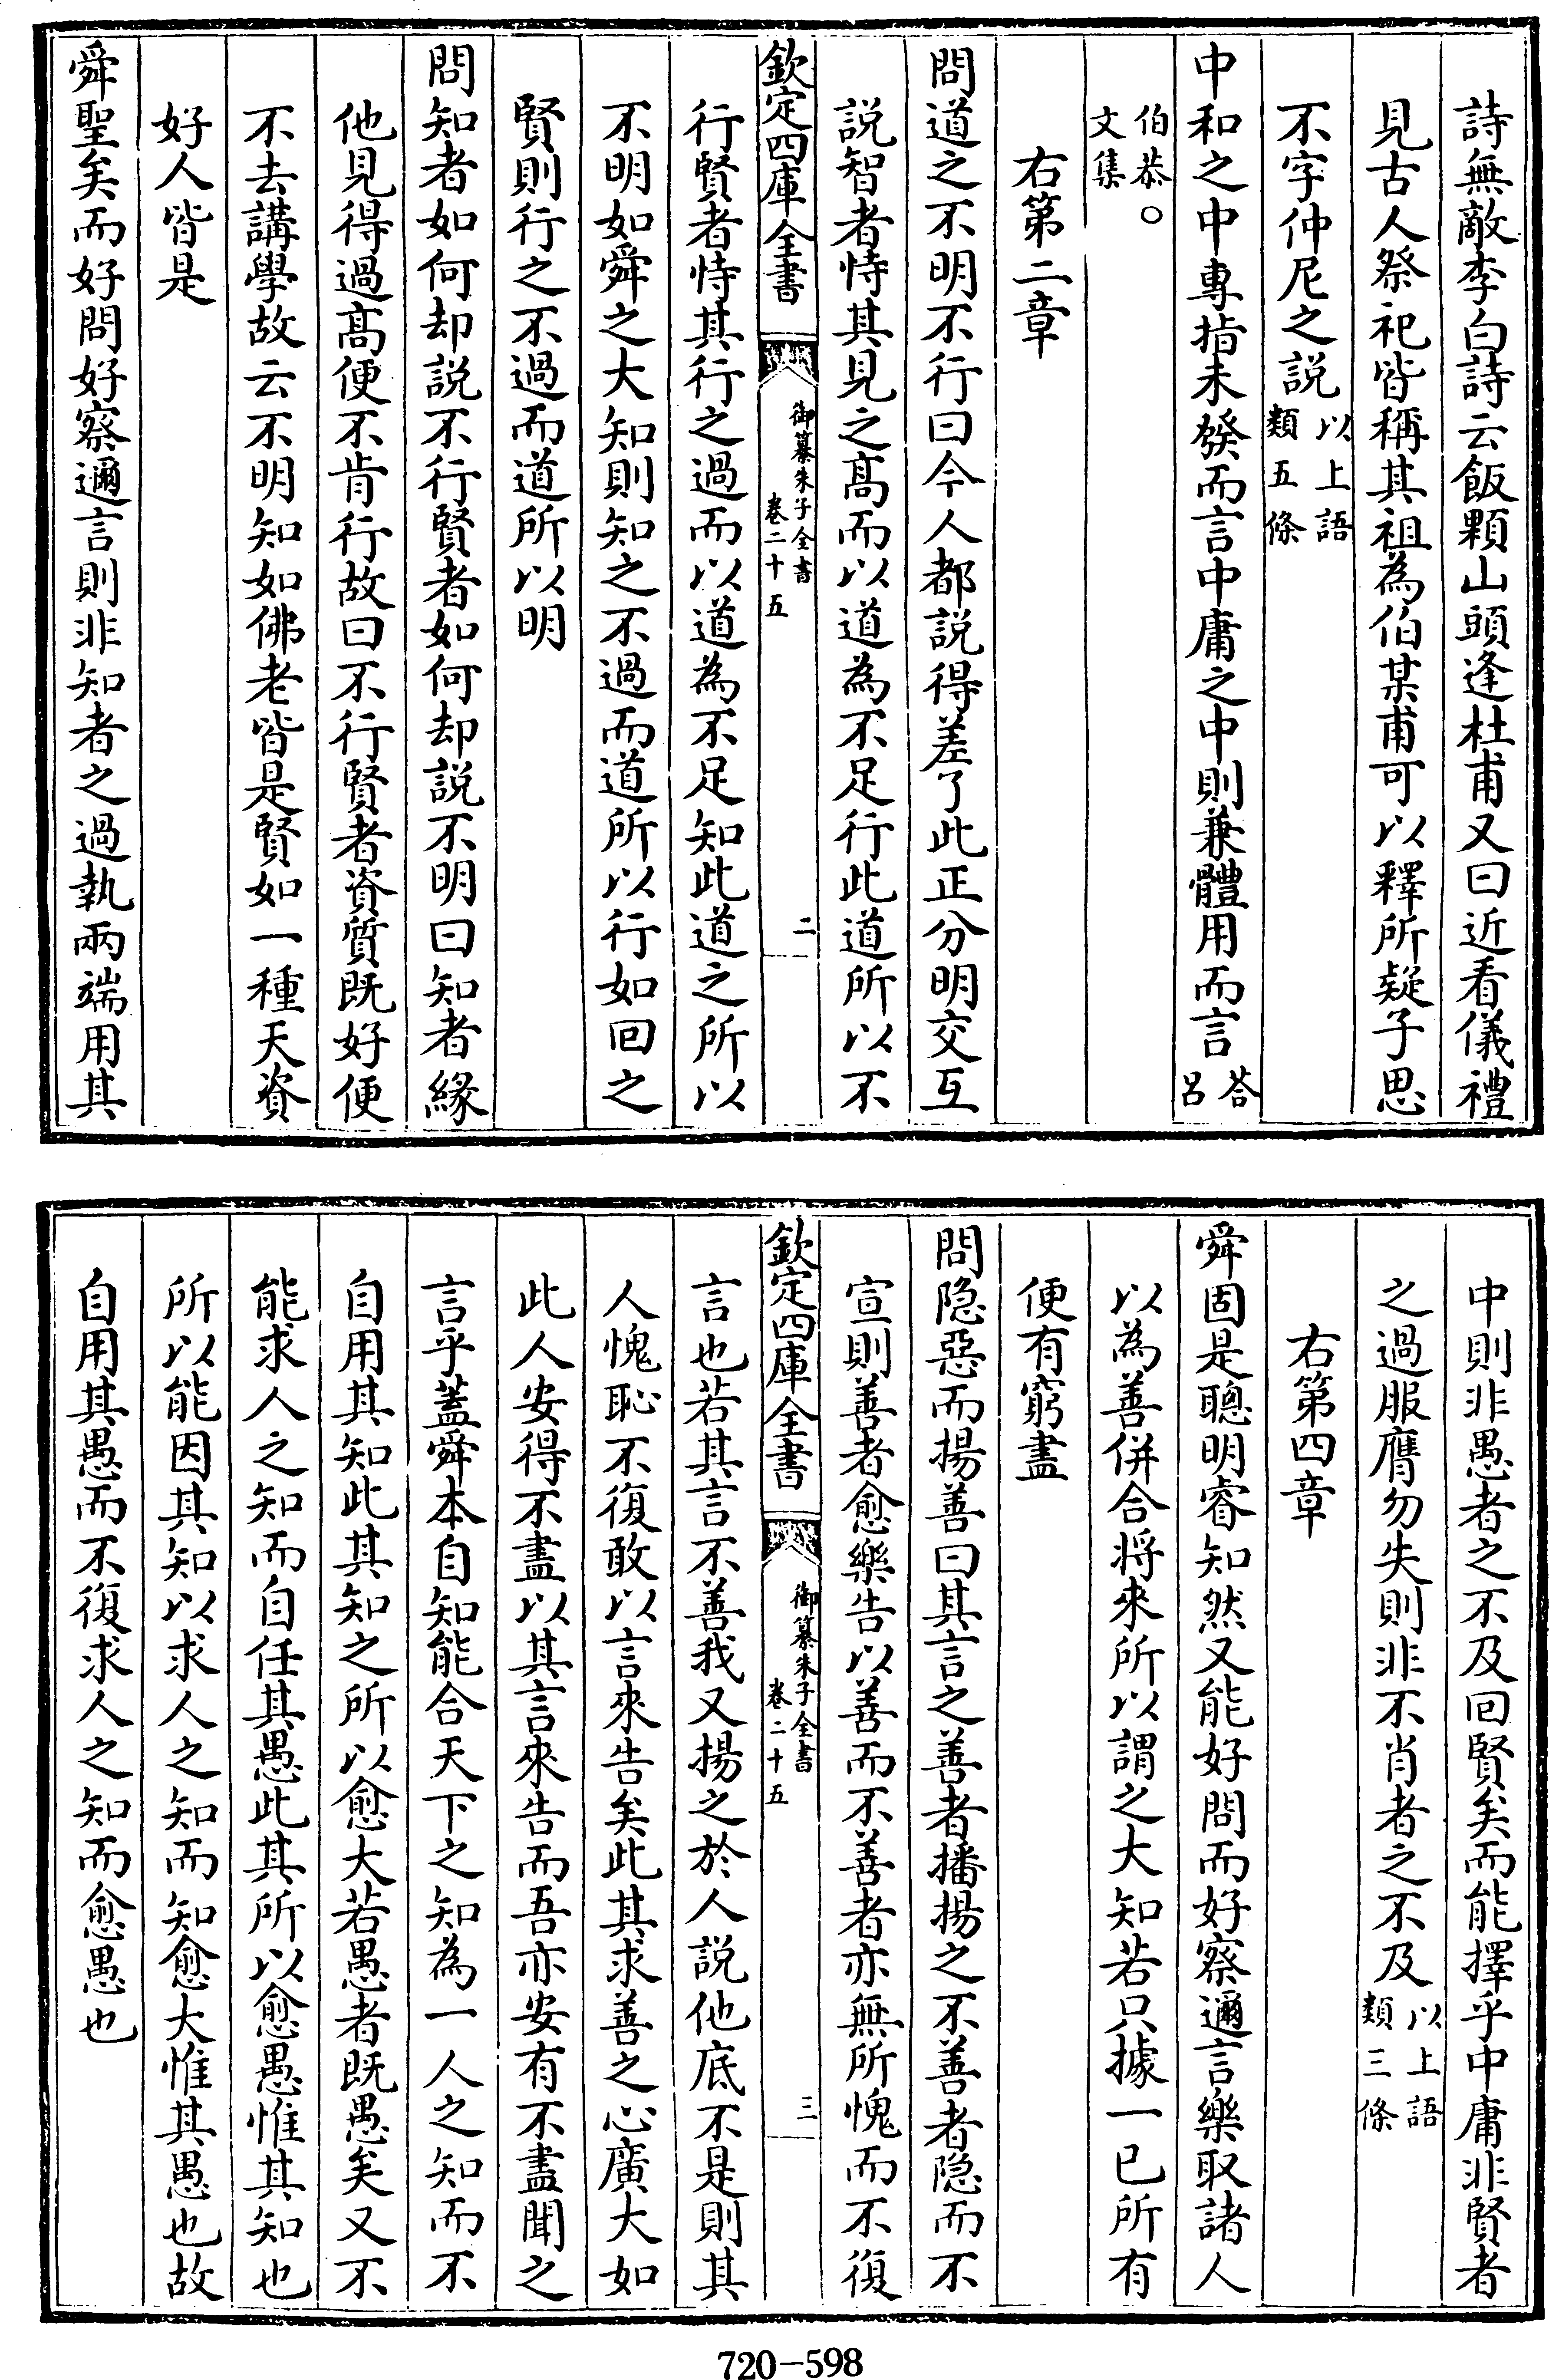 詩無敵李白詩云飯顆山頭逢杜甫又曰近看儀禮
見古人祭祀皆稱其祖為伯某甫可以釋所疑子思
不字仲尼之說以上語類五條
中和之中專指未發而言中庸之中則兼體用而言答呂
伯恭○文集
右第二章
問道之不明不行曰今人都說得差了此正分明交互
說智者恃其見之髙而以道為不足行此道所以不
欽定四庫全書
御纂朱子全書
卷二十五
二
行賢者恃其行之過而以道為不足知此道之所以
不明如舜之大知則知之不過而道所以行如回之
賢則行之不過而道所以明
問知者如何却說不行賢者如何却說不明曰知者緣
他見得過髙便不肯行故曰不行賢者資質既好便
不去講學故云不明知如佛老皆是賢如一種天資
好人皆是
舜聖矣而好問好察邇言則非知者之過執兩端用其
中則非愚者之不及回賢矣而能擇乎中庸非賢者
之過服膺勿失則非不肖者之不及以上語類三條
右第四章
舜固是聰明睿知然又能好問而好察邇言樂取諸人
以為善併合將來所以謂之大知若只據一已所有
便有窮盡
問隐惡而揚善曰其言之善者播揚之不善者隐而不
宣則善者愈樂告以善而不善者亦無所愧而不復
欽定四庫全書
御纂朱子全書
卷二十五
三
言也若其言不善我又揚之於人說他底不是則其
人愧恥不復敢以言來告矣此其求善之心廣大如
此人安得不盡以其言來告而吾亦安有不盡聞之
言乎蓋舜本自知能合天下之知為一人之知而不
自用其知此其知之所以愈大若愚者既愚矣又不
能求人之知而自任其愚此其所以愈愚惟其知也
所以能因其知以求人之知而知愈大惟其愚也故
自用其愚而不復求人之知而愈愚也
720-598